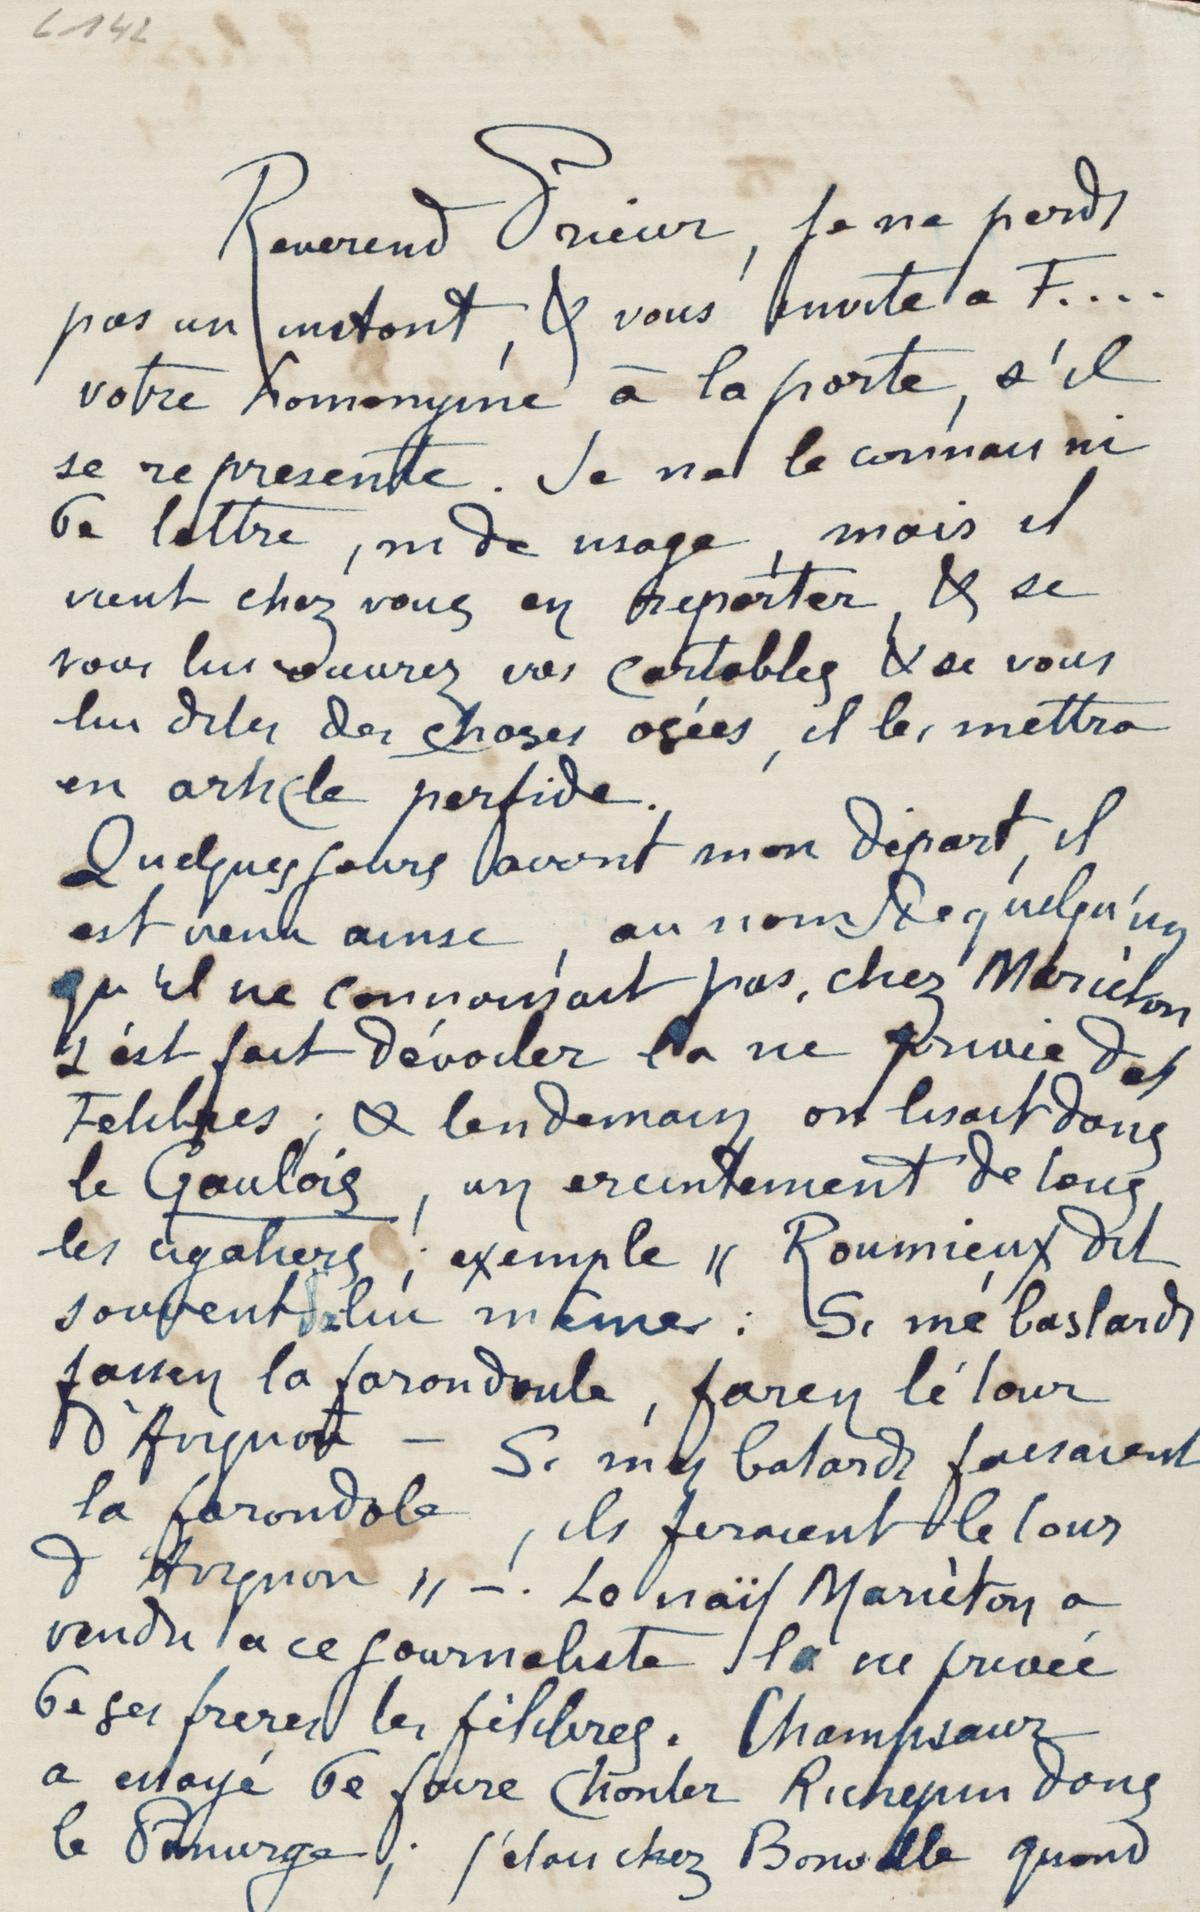 6142
Reverend Prieur, Je ne perds
pas un instant, & vous invite a F....
votre homonyme à la porte, s'il
se represente. Je ne le connais ni
de lettre, ni de usage, mais il
vient chez vous en reporter, & se
vous lui ouvrez vos cartables & se vous
lui dites des choses osées, il les mettra
en article perfide.
Quelques jours avant mon départ, il
est venu ainse, au nom de quelqu'un
qu'il ne connaissait pas, chez Mariéton
s'est fait dévoiler la vie privée des
Felibres ; & lendemain on lisait dans
le Gaulois, un ereintement de tous
les cigaliers ; exemple " Roumieux dit
souvent de lui même : Si mé bastards
fassen la farandoula, faren lé tour
d'Avignon — Si mes batards faisaient
la farandole, ils feraient le tour
d'Avignon " —. Le naïf Mariéton a
vendu a ce journaliste la vie privée
de ses freres les félibres. Champsaur
a essayé de faire chanter Richepin dans
le Panurge ; j'étais chez Bonvalle quand